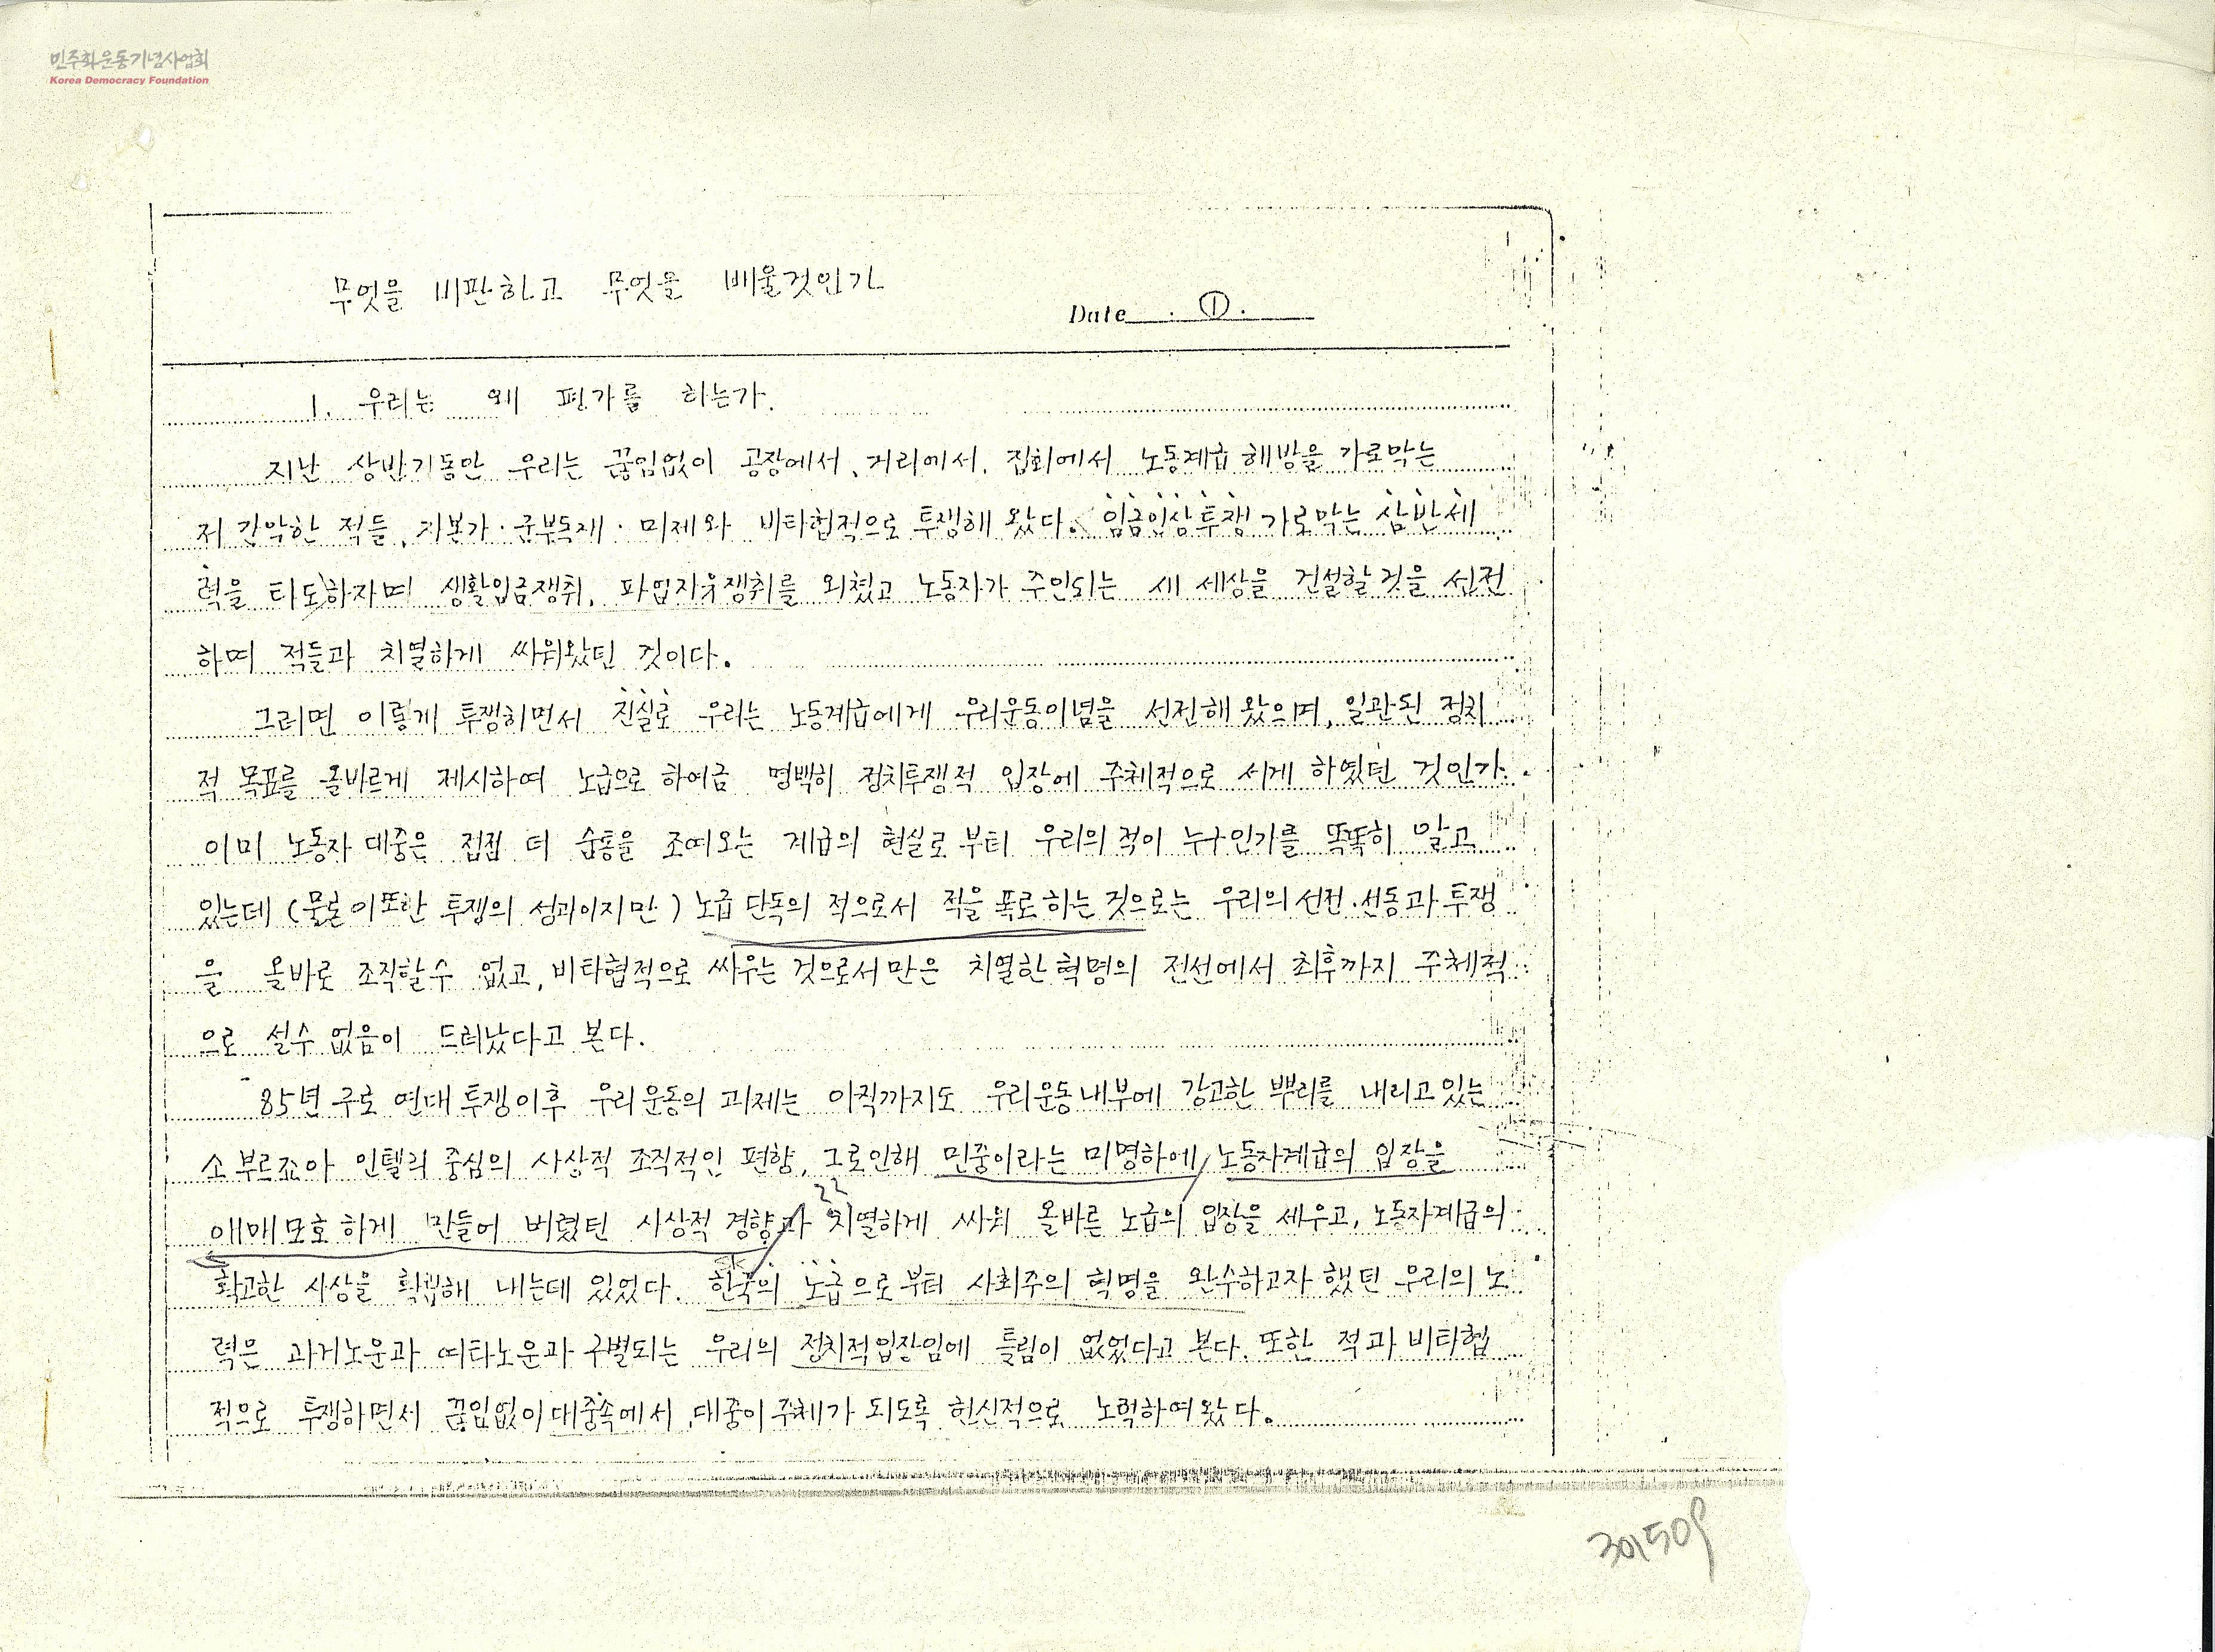 민주화운동기념사업회
Korea Democracy Foundation
무엇을 비판하고 무엇을 배울것인가
Date . ① .
1. 우리는 왜 평가를 하는가.
지난 상반기동안 우리는 끊임없이 공장에서, 거리에서, 집회에서 노동계급 해방을 가로막는
저 간악한 적들, 자본가·군부독재·미제와 비타협적으로 투쟁해 왔다. 임금인상투쟁 가로막는 삼반세
력을 타도하자며 생활임금쟁취, 파업자유쟁취를 외쳤고 노동자가 주인되는 새 세상을 건설할 것을 선전
하며 적들과 치열하게 싸워왔던 것이다.
그러면 이렇게 투쟁하면서 진실로 우리는 노동계급에게 우리운동이념을 선전해 왔으며, 일관된 정치
적 목표를 올바르게 제시하여 노급으로 하여금 명백히 정치투쟁적 입장에 주체적으로 서게 하였던 것인가.
이미 노동자 대중은 점점 더 숨통을 조여오는 계급의 현실로 부터 우리의 적이 누구인가를 똑똑히 알고
있는데 (물론 이또한 투쟁의 성과이지만) 노급 단독의 적으로서 적을 폭로하는 것으로는 우리의 선전·선동과 투쟁
을 올바로 조직할수 없고, 비타협적으로 싸우는 것으로서 만은 치열한 혁명의 전선에서 최후까지 주체적
으로 설수 없음이 드러났다고 본다.
85년 구로 연대 투쟁이후 우리 운동의 과제는 아직까지도 우리운동 내부에 강고한 뿌리를 내리고 있는
소부르죠아 인텔리 중심의 사상적 조직적인 편향, 그로인해 민중이라는 미명하에 노동자계급의 입장을
애매모호 하게 만들어 버렸던 사상적 경향과 치열하게 싸워 올바른 노급의 입장을 세우고, 노동자계급의
확고한 사상을 확립해 내는데 있었다. 한국의 노급으로 부터 사회주의 혁명을 완수하고자 했던 우리의 노
력은 과거노운과 여타노운과 구별되는 우리의 정치적입장임에 틀림이 없었다고 본다. 또한 적과 비타협
적으로 투쟁하면서 끊임없이 대중속에서, 대중이 주체가 되도록 헌신적으로 노력하여왔다.
301509